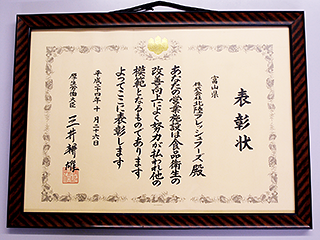 表彰状
富山県
株式会社北陸フレッシュフーズ殿
あなたの営業施設は食品衛生の
改善向上によく努力が払われ他の
模範となるものであります
よってここに表彰します
平成二十四年十月二十六日
厚生労働大臣 三井辨雄